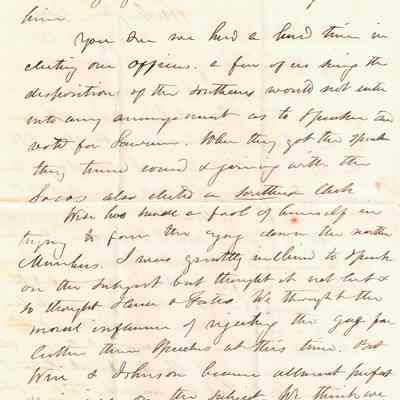 time.
You see we had a hard time in
electing our officers. a few of us
disposition of the southerns would not enter
into any arrangement as to Speaker and
voted for When they got the Speak
they turned round & joining with the
Locos also elected a southern Clerk
Wise has made a fool of himself in
trying to force the gag down the north
Members. I was greatly inclined to speak
on the subject but thought it not best &
so thought & We thought the
moral influence of rejecting the gag far
better than speeches at this time. But
Wise & Johnson became almost perfect
on the subject. We think we